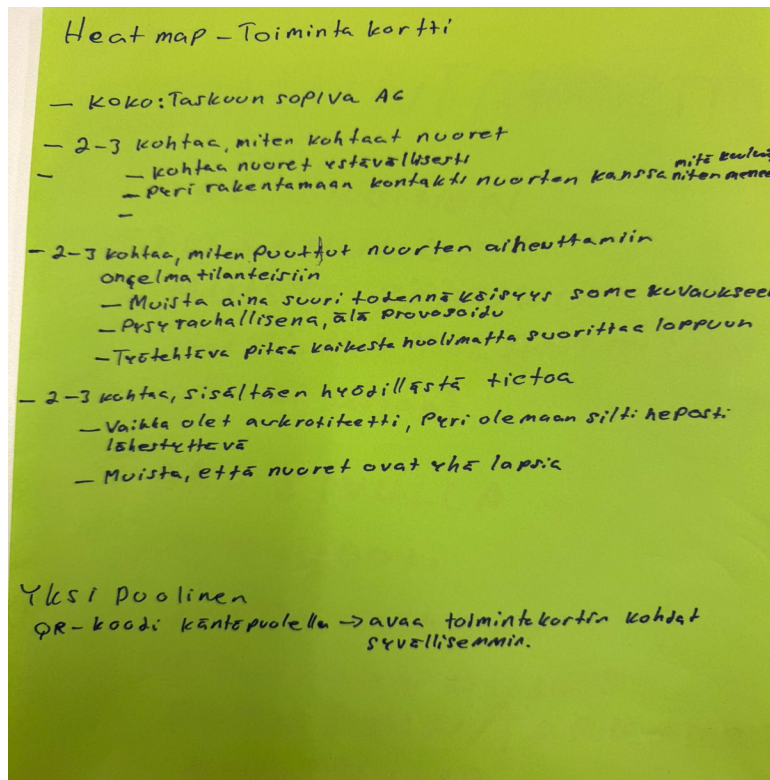 Heat map - Toiminta kortti
- KOKO: Taskuun sopiva A6
- 2-3 kohtaa, miten kohtaat nuoret
- - kohtaa nuoret ystävällisesti
- Pyri rakentamaan kontakti nuorten kanssa mitä miten menee
-
- 2-3 kohtaa, miten puutut nuorten aiheuttamiin
ongelmatilanteisiin
- Muista aina suuri todennäköisyys some kuvaukseen
- Pysy rauhallisena, älä provosoidu
- Työtehtävä pitää kaikesta huolimatta suorittaa loppuun
- 2-3 kohtaa, sisältäen hyödillästä tietoa
- Vaikka olet auktotiteetti, Pyri olemaan silti heposti
lähestyttevä
- Muista, että nuoret ovat yhä lapsia
Yksi puolinen
QR-koodi kääntöpuolella → avaa toimintakortin kohdat
syvällisemmin.